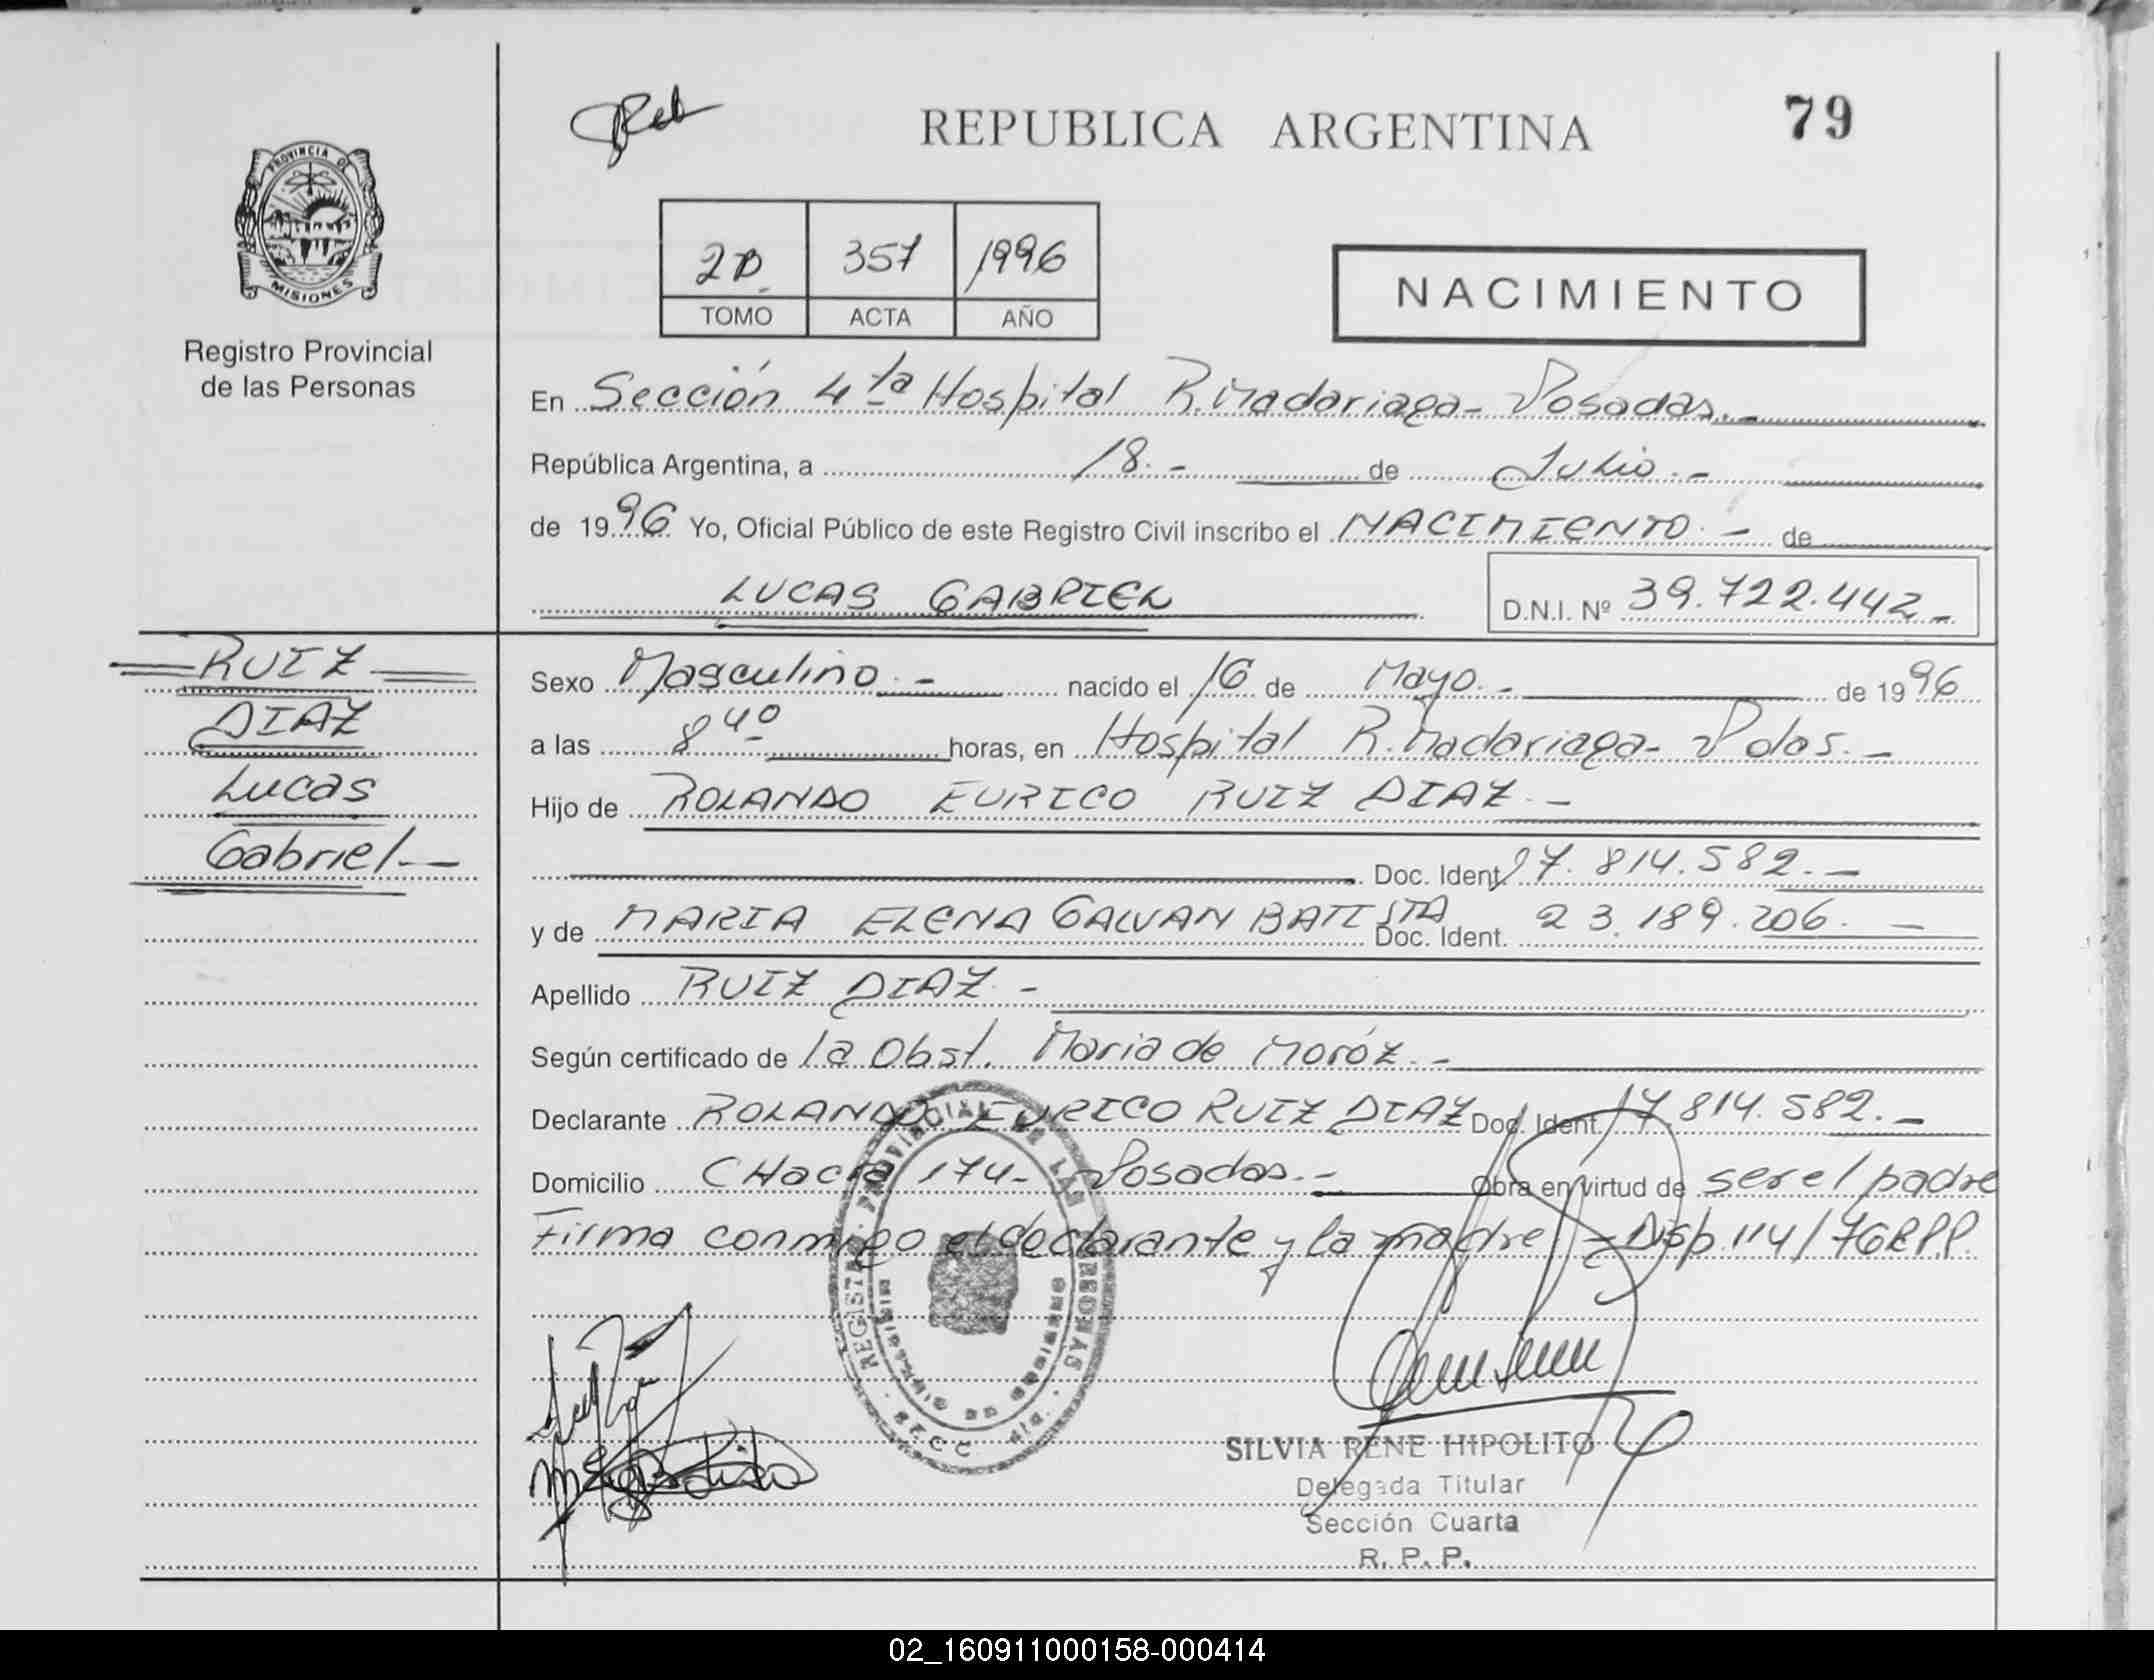 REPUBLICA ARGENTINA
79
PROVINCIA DE
MISIONES
Registro Provincial
de las Personas
2D 357 1996
TOMO ACTA AÑO
NACIMIENTO
En Sección 4ta Hospital R. Madariaga - Posadas.-
República Argentina, a 18.- de Julio.-
de 1996 Yo, Oficial Público de este Registro Civil inscribo el NACIMIENTO.- de
LUCAS GABRIEL
D.N.I. Nº 39.722.442.-
RUIZ
DIAZ
Lucas
Gabriel-
Sexo Masculino.- nacido el 16 de Mayo.- de 1996
a las 8 40 horas, en Hospital R. Madariaga- Pdas.-
Hijo de ROLANDO EURICO RUIZ DIAZ.-
Doc. Ident. 17.814.582.-
y de MARIA ELENA GALVAN BATISTA Doc. Ident. 23.189.206.-
Apellido RUIZ DIAZ.-
Según certificado de la Obst. Maria de Moróz.-
Declarante ROLANDO EURICO RUIZ DIAZ Doc. Ident. 17.814.582.-
Domicilio CHacra 174- Posadas.- Obra en virtud de ser el padre
Firma conmigo el declarante y la madre - Disp. 114/76RPP.
REGISTRO PROVINCIAL DE LAS PERSONAS
SILVIA RENE HIPOLITO
Delegada Titular
Sección Cuarta
R. P. P.
02_160911000158-000414